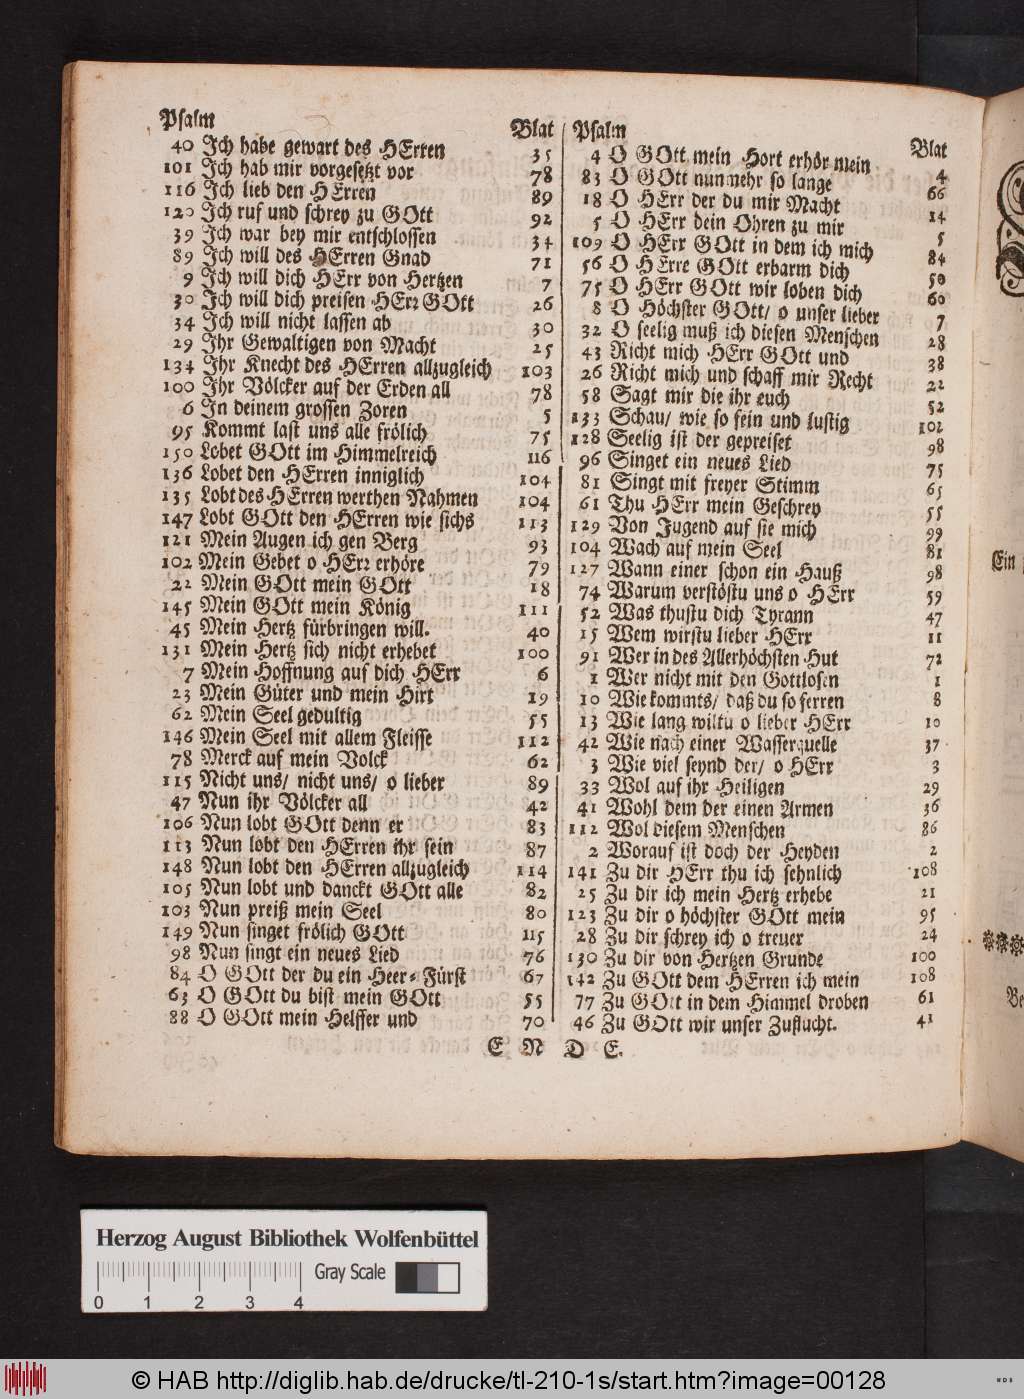 Psalm Blat
40 Jch habe gewart des HErren 35
101 Jch hab mir vorgesetzt vor 78
116 Jch lieb den HErren 89
120 Jch ruf und schrey zu GOtt 92
39 Jch war bey mir entschlossen 34
89 Jch will des HErren Gnad 71
9 Jch will dich HErr von Hertzen 7
30 Jch will dich preisen HErꝛ GOtt 26
34 Jch will nicht lassen ab 30
29 Jhr Gewaltigen von Macht 25
134 Jhr Knecht des HErren allzugleich 103
100 Jhr Völcker auf der Erden all 78
6 Jn deinem grossen Zoren 5
95 Kommt last uns alle frölich 75
150 Lobet GOtt im Himmelreich 116
136 Lobet den HErren inniglich 104
135 Lobt des HErren werthen Nahmen 104
147 Lobt GOtt den HErren wie sichs 113
121 Mein Augen ich gen Berg 93
102 Mein Gebet o HErꝛ erhöre 79
22 Mein GOtt mein GOtt 18
145 Mein GOtt mein König 111
45 Mein Hertz fürbringen will. 40
131 Mein Hertz sich nicht erhebet 100
7 Mein Hoffnung auf dich HErr 6
23 Mein Güter und mein Hirt 19
62 Mein Seel gedultig 55
146 Mein Seel mit allem Fleisse 112
78 Merck auf mein Volck 62
115 Nicht uns/ nicht uns/ o lieber 89
47 Nun ihr Völcker all 42
106 Nun lobt GOtt denn er 83
113 Nun lobt den HErren ihr sein 87
148 Nun lobt den HErren allzugleich 114
105 Nun lobt und danckt GOtt alle 82
103 Nun preiß mein Seel 80
149 Nun singet frölich GOtt 115
98 Nun singt ein neues Lied 76
84 O GOtt der du ein Heer-Fürst 67
63 O GOtt du bist mein GOtt 55
88 O GOtt mein Helffer und 70
Psalm Blat
4 O GOtt mein Hort erhör mein 4
83 O GOtt nunmehr so lange 66
18 O HErr der du mir Macht 14
5 O HErr dein Ohren zu mir 5
109 O HErr GOtt in dem ich mich 84
56 O HErre GOtt erbarm dich 50
75 O HErr GOtt wir loben dich 60
8 O Höchster GOtt/ o unser lieber 7
32 O seelig muß ich diesen Menschen 28
43 Richt mich HErr GOtt und 38
26 Richt mich und schaff mir Recht 22
58 Sagt mir die ihr euch 52
133 Schau/ wie so fein und lustig 102
128 Seelig ist der gepreiset 98
96 Singet ein neues Lied 75
81 Singt mit freyer Stimm 65
61 Thu HErr mein Geschrey 55
129 Von Jugend auf sie mich 99
104 Wach auf mein Seel 81
127 Wann einer schon ein Hauß 98
74 Warum verstöstu uns o HErr 59
52 Was thustu dich Tyrann 47
15 Wem wirstu lieber HErr 11
91 Wer in des Allerhöchsten Hut 72
1 Wer nicht mit den Gottlosen 1
10 Wie kommts/ daß du so ferren 8
13 Wie lang wiltu o lieber HErr 10
42 Wie nach einer Wasserquelle 37
3 Wie viel seynd der/ o HErr 3
33 Wol auf ihr Heiligen 29
41 Wohl dem der einen Armen 36
112 Wol diesem Menschen 86
2 Worauf ist doch der Heyden 2
141 Zu dir HErr thu ich sehnlich 108
25 Zu dir ich mein Hertz erhebe 21
123 Zu dir o höchster GOtt mein 95
28 Zu dir schrey ich o treuer 24
130 Zu dir von Hertzen Grunde 100
142 Zu GOtt dem HErren ich mein 108
77 Zu GOtt in dem Himmel droben 61
46 Zu GOtt wir unser Zuflucht. 41
E N D E.
Ein
Be
Herzog August Bibliothek Wolfenbüttel
Gray Scale
0 1 2 3 4
© HAB http://diglib.hab.de/drucke/tl-210-1s/start.htm?image=00128
WDB